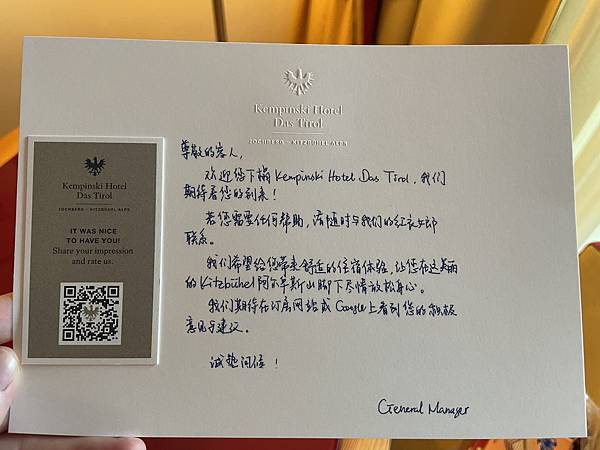 Kempinski Hotel
Das Tirol
JOCHBERG – KITZBÜHEL ALPS
尊敬的客人，
欢迎您下榻 Kempinski Hotel Das Tirol，我们
期待着您的到来！
若您需要任何帮助，请随时与我们的红衣女郎
联系。
我们希望给您带来舒适的住宿体验，让您在这美丽
的 Kitzbühel 阿尔卑斯山脚下尽情放松身心。
我们期待在订房网站或 Google 上看到您的积极
意见与建议。
诚挚问候！
General Manager
Kempinski Hotel
Das Tirol
JOCHBERG – KITZBÜHEL ALPS
IT WAS NICE
TO HAVE YOU!
Share your impression
and rate us.